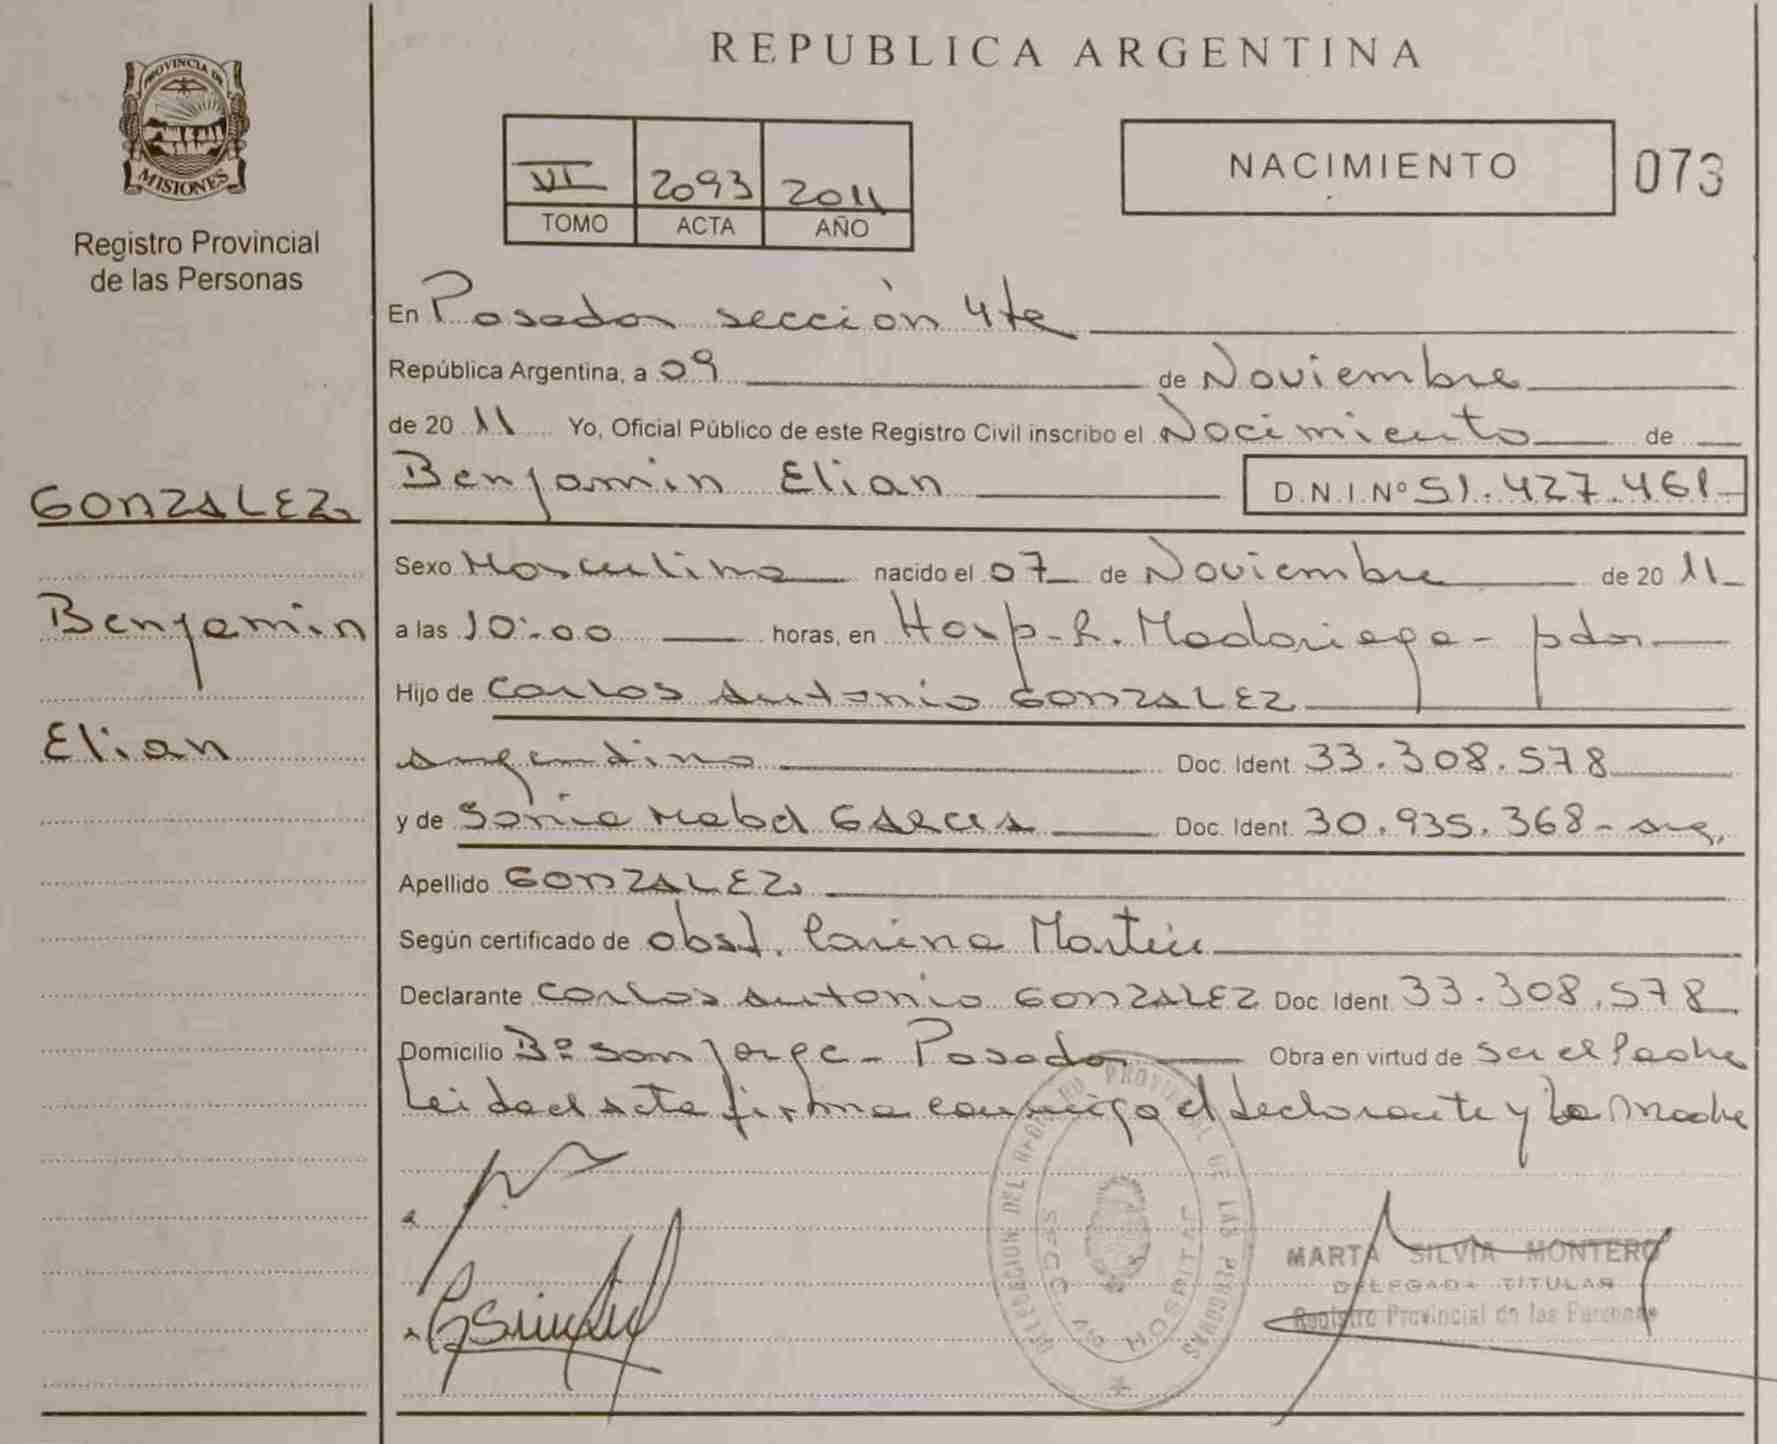 REPUBLICA ARGENTINA
PROVINCIA DE
MISIONES
Registro Provincial
de las Personas
VI 2093 2011
TOMO ACTA AÑO
NACIMIENTO 073
En Posadas sección 4ta
República Argentina, a 09 de Noviembre
de 2011 Yo, Oficial Público de este Registro Civil inscribo el Nacimiento de
Benjamin Elian D.N.I.Nº 51.427.461
GONZALEZ
Benjamin
Elian
Sexo Masculino nacido el 07 de Noviembre de 2011
a las 10:00 horas, en Hosp. R. Madariaga - pdas
Hijo de Carlos Antonio GONZALEZ
argentino Doc. Ident. 33.308.578
y de Sonia Mabel GARCIA Doc. Ident. 30.935.368 - arg.
Apellido GONZALEZ
Según certificado de obst. Carina
Declarante Carlos Antonio GONZALEZ Doc. Ident. 33.308.578
Domicilio Bº San Jorge - Posadas Obra en virtud de ser el Padre
Leida el acta firma conmigo el declarante y la Madre
DELEGACION DEL REGISTRO PROVINCIAL DE LAS PERSONAS
MARTA SILVIA MONTERO
DELEGADA TITULAR
Registro Provincial de las Personas